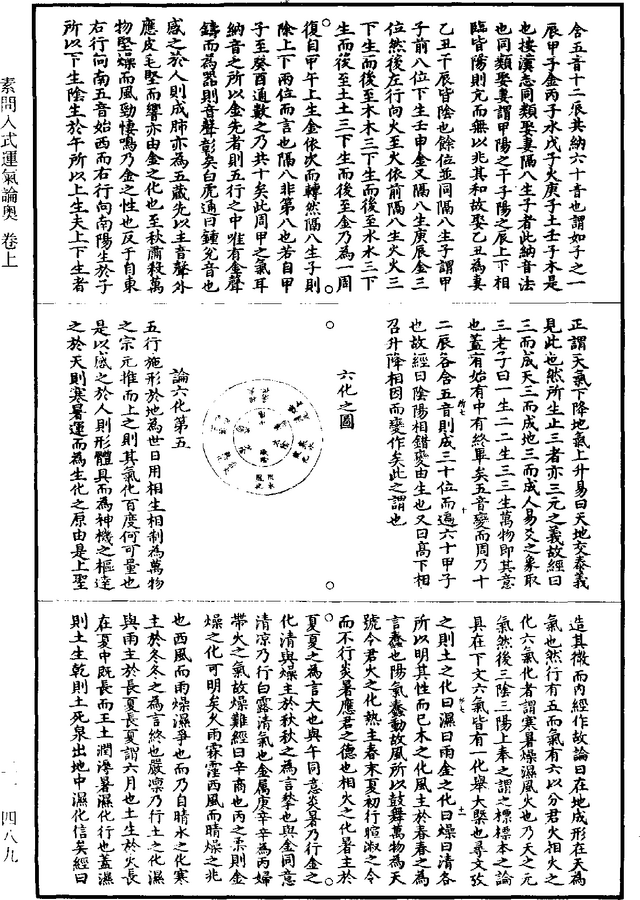 素問入式運氣論奧 卷上
含五音十二辰共納六十音也謂如子之一
辰甲子金丙子水戊子火庚子土壬子木是
也接漢志同類娶妻隔八生子者此納音法
也同類娶妻謂甲陽之干子陽之辰上下相
臨皆陽則亢而無以兆其和故娶乙丑為妻
乙丑干辰皆陰也餘位並同隔八生子謂甲
子前八位下生壬申金又隔八生庚辰金三
位然後左行向火至火依前隔八生火火三
下生而後至木木三下生而後至水水三下
生而後至土土三下生而後至金乃為一周
復自甲午上生金依次而轉然隔八生子則
除上下兩位而言也隔八非第八也若自甲
子至癸酉通數之乃共十矣此周甲之氣耳
納音之所以金先者則五行之中唯有金聲
鑄而為器則音聲彰矣白虎通曰鍾兌音也
感之於人則成肺亦為五藏先以主音聲外
應皮毛堅而響亦由金之化也至秋肅殺萬
物堅燥而風勁悽鳴乃金之性也反于自東
右行向南五音始西而右行向南陽生於子
所以下生陰生於午所以上生夫上下生者
正謂天氣下降地氣上升易曰天地交泰義
見此也然所生止三者亦三元之義故經曰
三而成天三而成地三而成人易爻之象取
三老子曰一生二二生三三生萬物即其意
也蓋有始有中有終畢矣五音變而周乃十
二辰各含五音則成三十位而遍六十甲子
也故經曰陰陽相錯變由生也又曰高下相
召升降相因而變作矣此之謂也
六化之圖
論六化第五
五行施形於地為世日用相生相制為萬物
之宗元推而上之則其氣化百度何可量也
是以感之於人則形體具而為神機之樞達
之於天則寒暑運而為生化之原由是上聖
造其微而內經作故論曰在地成形在天為
氣也然行有五而氣有六以分君火相火之
化六氣化者謂寒暑燥濕風火也乃天之元
氣然後三陰三陽上奉之謂之標標本之論
具在下文六氣皆有一化舉大槩也尋文攷
之則土之化曰濕曰雨金之化曰燥曰清各
所以明其性而已木之化風主於春春之為
言蠢也陽氣蠢動故風所以鼓舞萬物為天
號令君火之化熱主春末夏初行暄淑之令
而不行炎暑應君之德也相火之化暑主於
夏夏之為言大也與午同意炎暑乃行金之
化清與燥主於秋秋之為言揫也與金同意
清涼乃行白露清氣也金屬庚辛辛為丙婦
帶火之氣故燥難經曰辛商也丙之柔則金
燥之化可明矣火雨霖霪西風而晴燥之兆
也西風而雨燥濕爭也而乃自晴水之化寒
主於冬冬之為言終也嚴凛乃行土之化濕
與雨主於長夏長夏謂六月也土生於火長
在夏中既長而王土潤溽暑濕化行也蓋濕
則土生乾則土死泉出地中濕化信矣經曰
四八九